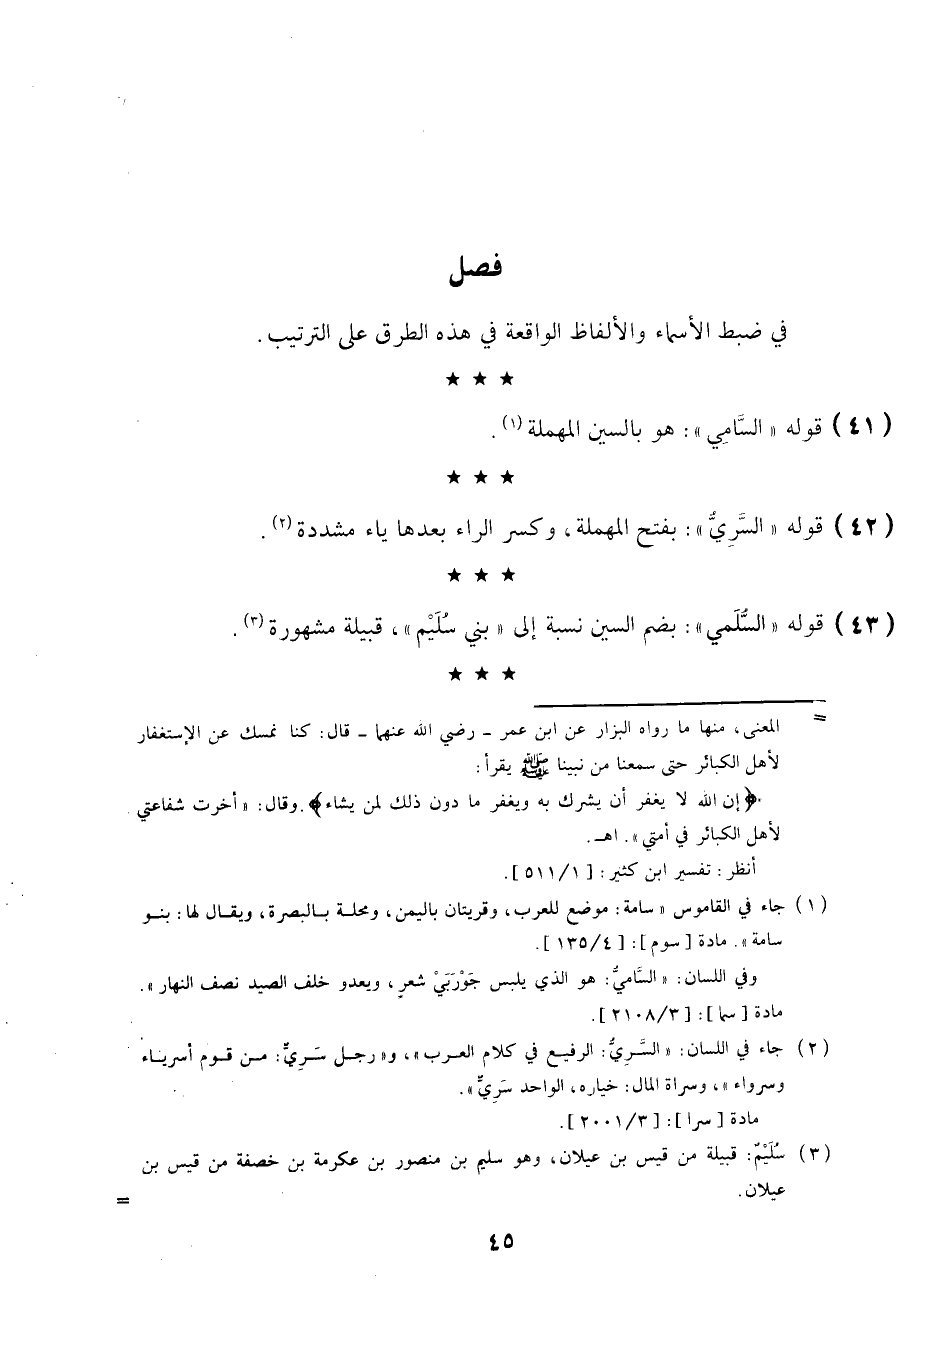 فصل
في ضبط الأسماء والألفاظ الواقعة في هذه الطرق على الترتيب .
★ ★ ★
( ٤١ ) قوله « السَّامِي » : هو بالسين المهملة (١) .
★ ★ ★
( ٤٢ ) قوله « السَّرِيُّ » : بفتح المهملة ، وكسر الراء بعدها ياء مشددة (٢) .
★ ★ ★
( ٤٣ ) قوله « السُّلَمي » : بضم السين نسبة إلى « بني سُلَيْم » ، قبيلة مشهورة (٣) .
★ ★ ★
= المعنى ، منها ما رواه البزار عن ابن عمر ـ رضي الله عنهما ـ قال : كنا نمسك عن الإستغفار
لأهل الكبائر حتى سمعنا من نبينا ﷺ يقرأ :
﴿ إن الله لا يغفر أن يشرك به ويغفر ما دون ذلك لمن يشاء ﴾ . وقال : « أخرت شفاعتي
لأهل الكبائر في أمتي » . اهـ .
أنظر : تفسير ابن كثير : [ ٥١١/١ ] .
( ١ ) جاء في القاموس « سامة : موضع للعرب ، وقريتان باليمن ، ومحلة بالبصرة ، ويقال لها : بنو
سامة » . مادة [ سوم ] : [ ١٣٥/٤ ] .
وفي اللسان : « السَّاميُّ : هو الذي يلبس جَوْرَبَيْ شعرٍ ، ويعدو خلف الصيد نصف النهار » .
مادة [ سما ] : [ ٢١٠٨/٣ ] .
( ٢ ) جاء في اللسان : « السَّرِيُّ : الرفيع في كلام العرب » ، و« رجل سَرِيٌّ : من قوم أسرياء
وسرواء » ، وسراة المال : خياره ، الواحد سَرِيٌّ » .
مادة [ سرا ] : [ ٢٠٠١/٣ ] .
( ٣ ) سُلَيْمٌ : قبيلة من قيس بن عيلان ، وهو سليم بن منصور بن عكرمة بن خصفة من قيس بن
عيلان . =
٤٥